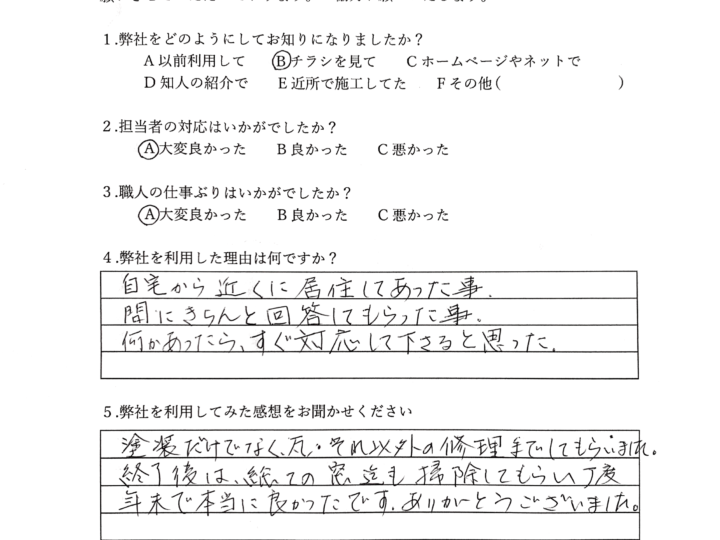 1.弊社をどのようにしてお知りになりましたか？
A 以前利用して　B チラシを見て　C ホームページやネットで
D 知人の紹介で　E 近所で施工してた　F その他(　　　)
2.担当者の対応はいかがでしたか？
A 大変良かった　B 良かった　C 悪かった
3.職人の仕事ぶりはいかがでしたか？
A 大変良かった　B 良かった　C 悪かった
4.弊社を利用した理由は何ですか？
自宅から近くに居住してあった事.
問にきちんと回答してもらった事.
何かあったら、すぐ対応して下さると思った.
5.弊社を利用してみた感想をお聞かせください
塗装だけでなく、瓦・それ以外の修理までしてもらいました。
終了後は、総ての窓迄も掃除してもらい丁度
年末で本当に良かったです.ありがとうございました。